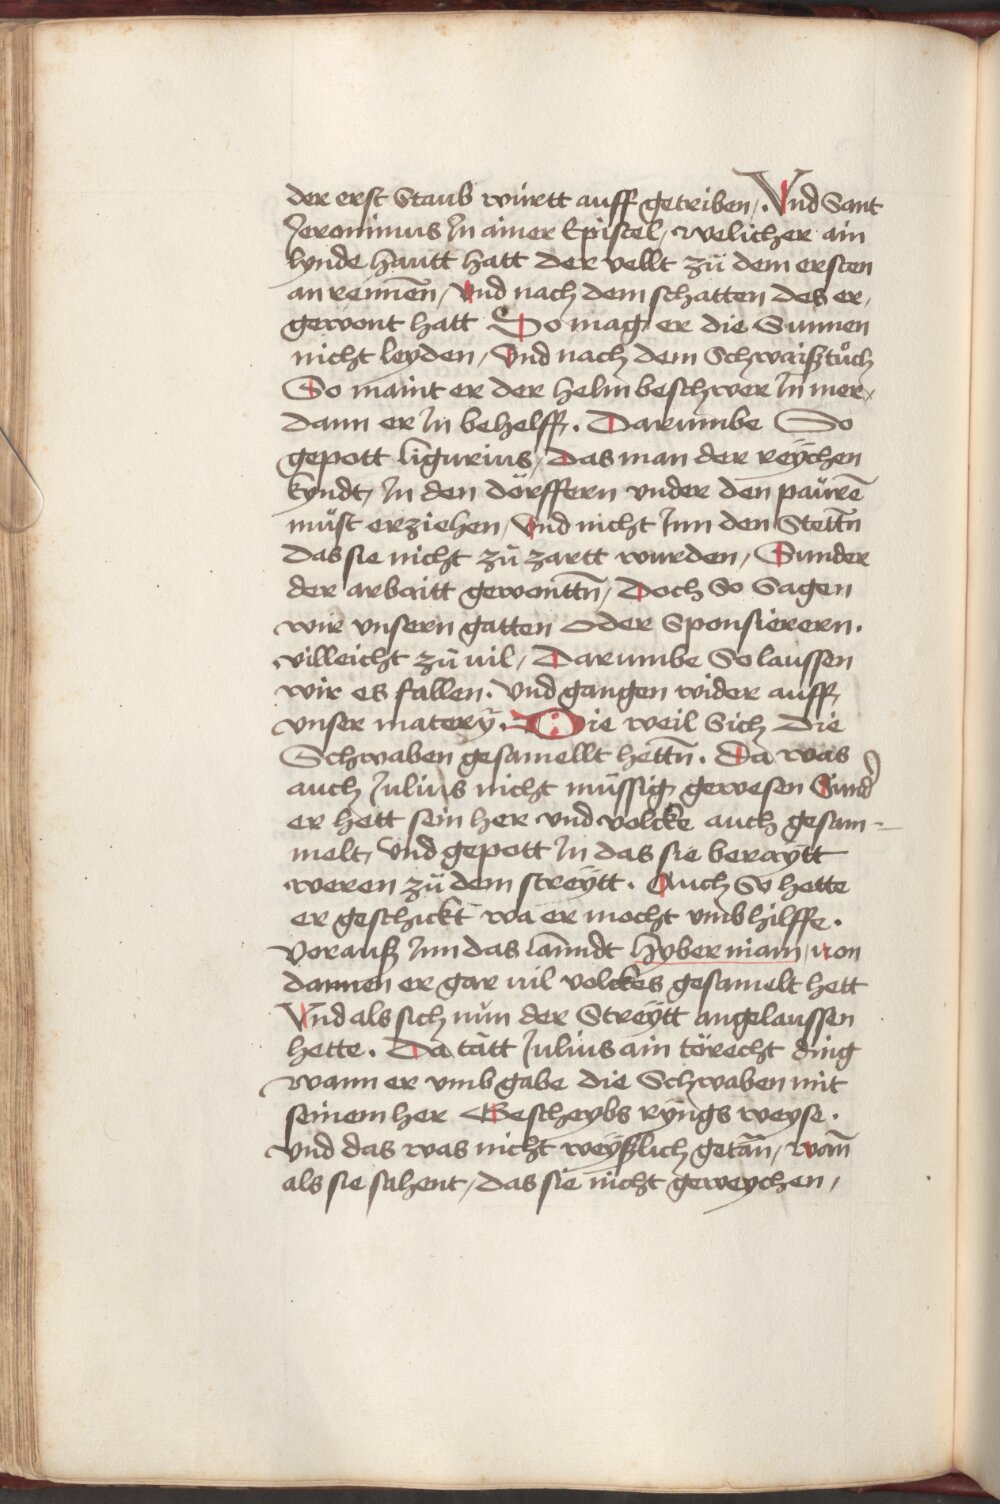 der erst Staub württ auff getriben. Vnd Sant
Jeronimus Jn ainer Epistel, welicher ain
lynde hautt hatt der vellt zü dem ersten
an rennen̄, Vnd nach dem schatten des er,
gewont hatt So mag er die Sunnen
nicht leyden, Vnd nach dem Schwaißtůch
So maint er der helm beschwer Jn mer,
dann er Jn behelff. Darumbe So
gepott ligurius, das man der reÿchen
kyndt, Jn den dörffern vnder den paüren̄
müst erziehen, Vnd nicht Jnn den Stettn̄
das sie nicht zü zartt wurden, Sunder
der arbaitt gewonttn̄, Doch So Sagen
wir vnsern gatten Oder Sponsierern.
villeicht zü uil, Darumbe So laussen
wir es fallen. Vnd gangen wider auff,
vnser matery̆. Die weil Sich die
Schwaben gesamellt hettn̄. Da was
auch Julius nicht müssig gewesen Sund̕
er hett sein her vnd volcke auch gesam-
melt, Vnd gepott Jn das sie beraÿtt
weren zü dem streÿtt. Auch So hette
er geschickt wa er mocht vmb hilffe.
Vorauß Jnn das launndt hyberniam, uon
dannen er gar uil volckes gesamelt hett
Vnd als sich nün der Streÿtt angelaussen
hette. Da tätt Julius ain törecht ding
wann er vmb gabe die Schwaben mit
seinem her Gescheybs ryngs weyse.
Vnd das was nicht weyßlich getan̄, wan̄
als sie sahent, das sie nicht geweychen,